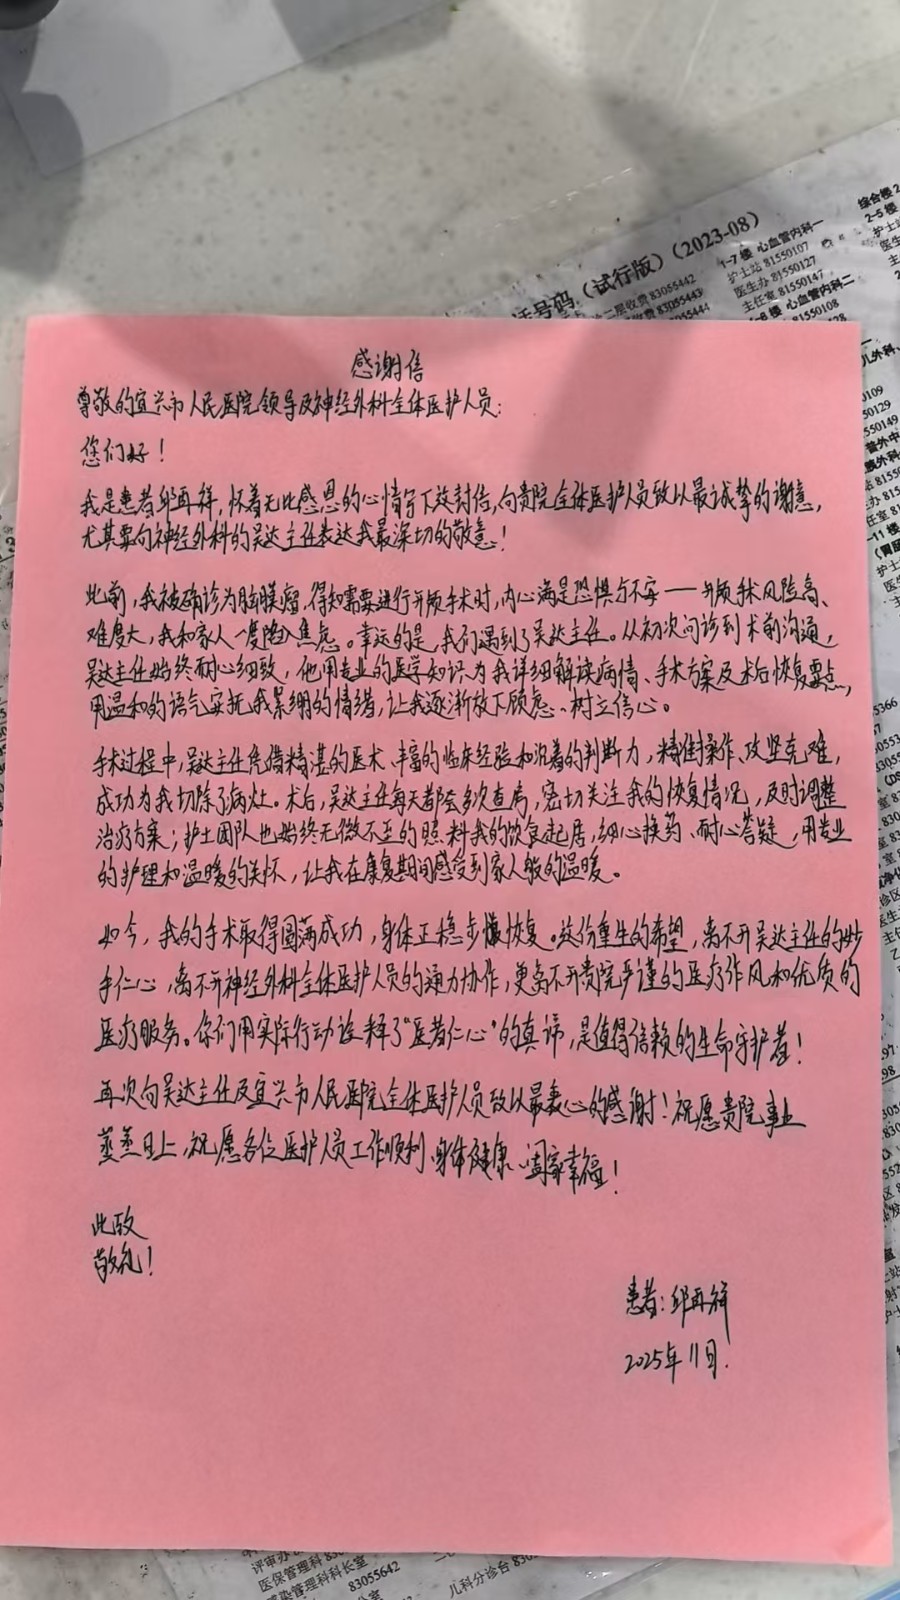 综合楼2
2-5楼
护士站
医生
主任
话号码（试行版）（2023-08）
二层收费 83055442
收费 83055443
1-7楼 心血管内科一
护士站 81550107
医生办 81550127
主任室 81550147
心血管内科二
81550108
儿外科、
感谢信
尊敬的宜兴市人民医院领导及神经外科全体医护人员：
您们好！
我是患者邱再祥，怀着无比感恩的心情写下这封信，向贵院全体医护人员致以最诚挚的谢意，
尤其要向神经外科的吴达主任表达我最深切的敬意！
此前，我被确诊为脑膜瘤，得知需要进行开颅手术时，内心满是恐惧与不安——开颅手术风险高、
难度大，我和家人一度陷入焦虑。幸运的是，我们遇到了吴达主任。从初次问诊到术前沟通，
吴达主任始终耐心细致，他用专业的医学知识为我详细解读病情、手术方案及术后恢复要点，
用温和的语气安抚我紧绷的情绪，让我逐渐放下顾虑、树立信心。
手术过程中，吴达主任凭借精湛的医术、丰富的临床经验和沉着的判断力，精准操作、攻坚克难，
成功为我切除了病灶。术后，吴达主任每天都会多次查房，密切关注我的恢复情况，及时调整
治疗方案；护士团队也始终无微不至的照料我的饮食起居，细心换药、耐心答疑，用专业
的护理和温暖的关怀，让我在康复期间感受到家人般的温暖。
如今，我的手术取得圆满成功，身体正稳步恢复。这份重生的希望，离不开吴达主任的妙
手仁心，离不开神经外科全体医护人员的通力协作，更离不开贵院严谨的医疗作风和优质的
医疗服务。你们用实际行动诠释了“医者仁心”的真谛，是值得信赖的生命守护者！
再次向吴达主任及宜兴市人民医院全体医护人员致以最衷心的感谢！祝愿贵院事业
蒸蒸日上，祝愿各位医护人员工作顺利、身体健康、阖家幸福！
此致
敬礼！
患者：邱再祥
2025年11月.
评审办
医保管理科科长室
感染管理科科长室
83055642
儿科分诊台